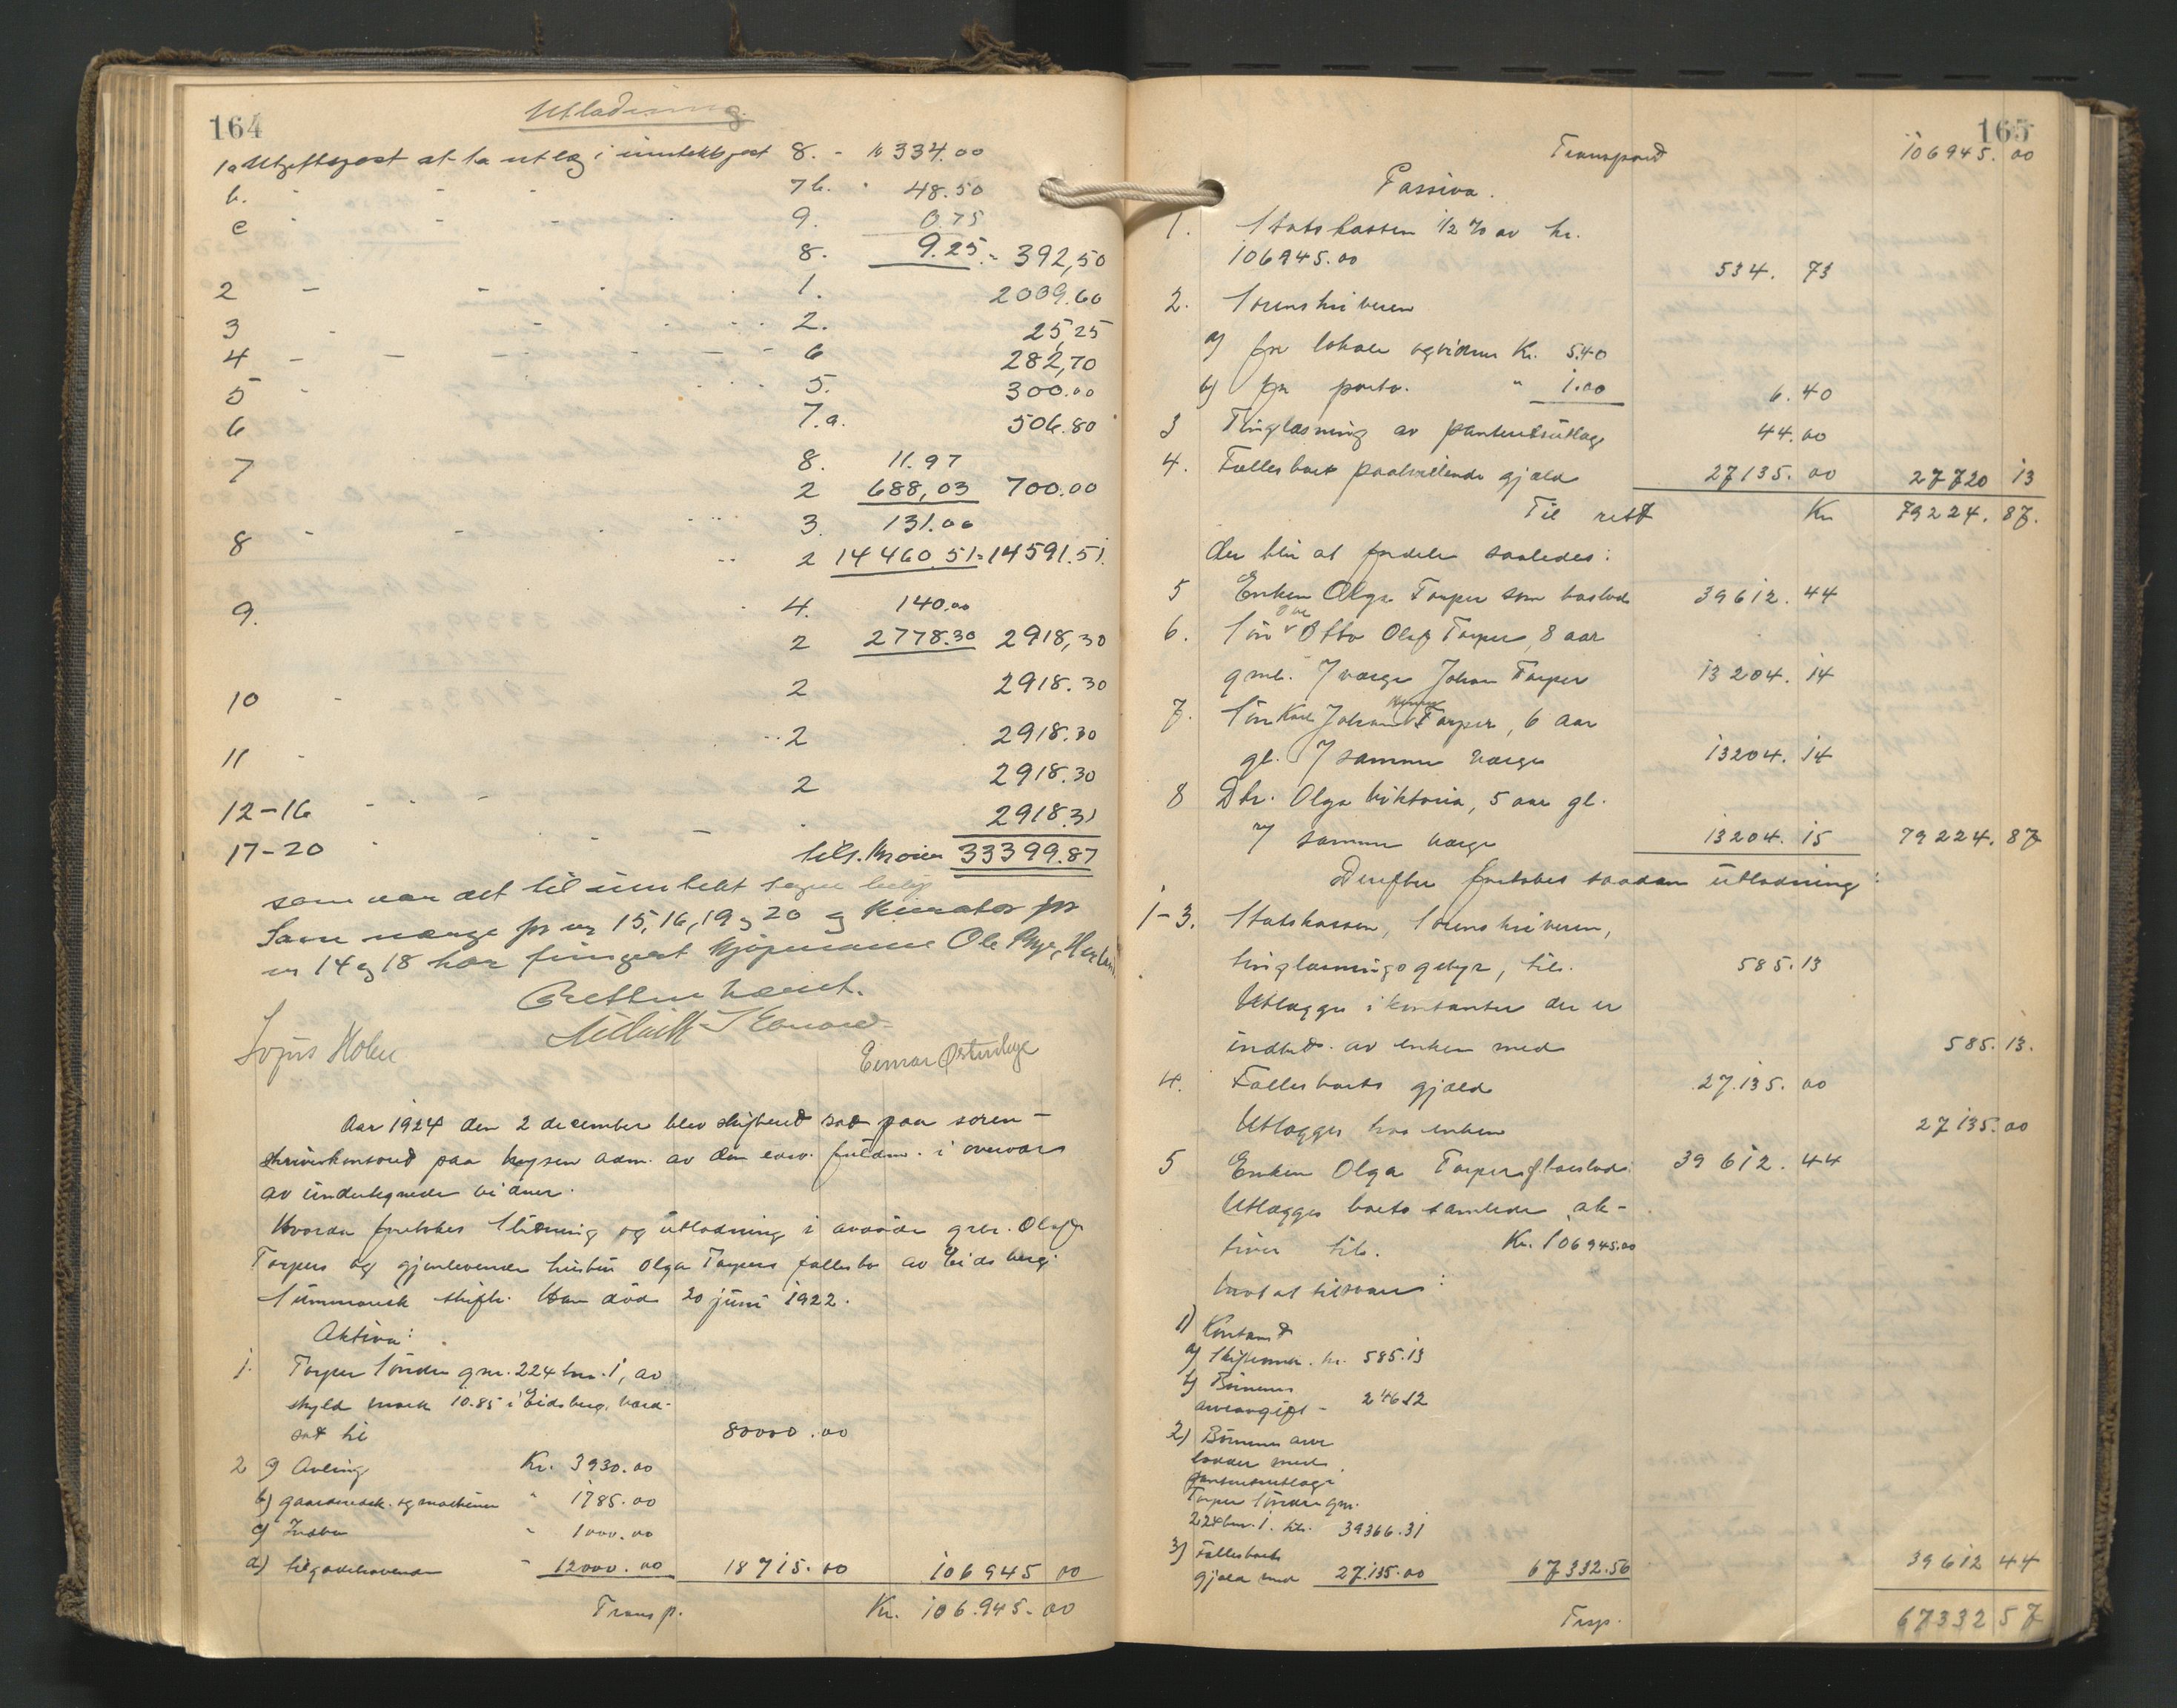 164
Utlodning.
1a Utgiftspost at ta utlæg i inntektspost 8. - kr 334.00
b. " - - 7b. " 48.50
c " - - 9. 0.75
8. 9.25 = 392,50
2 - - 1. 2009.60
3 - - 2. 25,25
4 - - - - - 6 282,70
5 - 5. 300.00
6 7.a. 506.80
7 8. 11.97
2 688,03 700.00
3. 131.00
8 2 14460.51 = 14591.51
9. 4. 140.00
2 2778.30 2918,30
10 2 2918.30
11 2 2918.30
2 2918.30
12-16 2918.31
17-20 tils. Kroner 33399.87
som var det til inntekt førte beløp
Som værge for nr 15, 16, 19 og 20 og kurator for
nr 14 og 18 har fungert kjøpmann Ole Bye,
Retten hævet.
Einar Østerhye
Aar 1924 den 2 december blev skifteret sat paa soren-
skriverkontoret paa Mysen adm. av den edsv. fuldm. i overvær
av undertegnede vidner.
Hvorda foretokes slutning og utlodning i avdøde grbr. Olaf
Torpers og gjenlevende hustru Olga Torpers fællesbo av Eidsberg
Summarisk skifte. Han døde 20 juni 1922.
Aktiva:
1. Torper søndre gnr. 224 bnr. 1, av
skyld mark 10.85 i Eidsberg, værd-
sat til 80000.00
2 a) Avling Kr. 3930.00
b) gaardsredsk. og maskiner " 1785.00
c) Indbo " 1000.00
d) tilgodehavende " 12000.00 18715.00 106945 00
Transp. Kr. 106.945.00
165
Transport 106945.00
Passiva.
1. Statskassen 1/2 % av kr.
106945.00 534. 73
2. Sorenskriveren
a) for lokale og vidner Kr. 5.40
b) for porto. " 1.00 6.40
3 Tinglæsning av panteutlæg 44.00
4. Fællesboets paahvilende gjæld 27135.00 27720 13
Til rest Kr 79224.87.
der blir at fordele saaledes:
5 Enken Olga Torper som boslod 39612.44
6. Søn Otto Olaf Torper, 8 aar
gml. v/ værge Johan Torper 13204.14
7. Søn Karl Johan Torper, 6 aar
gl. v/ samme værge 13204.14
8 Dtr. Olga Viktoria, 5 aar gl.
v/ samme værge 13204.15 79224.87
Derefter foretokes saadan utlodning:
1-3. Statskassen, Sorenskriveren,
tinglæsningsgebyr, tils. 585.13
Utlægges i kontanter der er
indbet. av enken med 585.13.
4. Fællesboets gjæld 27.135.00
Utlægges hos enken 27135.00
5 Enken Olga Torpers boslod 39612.44
Utlægges boets samlede ak-
tiver til. Kr. 106945.00
mot at tilsvare:
1) Kontant
a) Skifteomk. kr. 585.13
b) Børnenes
arveavgift - 246.12
2) Børnenes arve
lodder med
panteutlæg i
Torper søndre gnr.
224 bnr. 1. tils. 39366.31
3) Fællesboets
gjæld med 27.135.00 67332.56 39612 44
Trsp. 67332 57